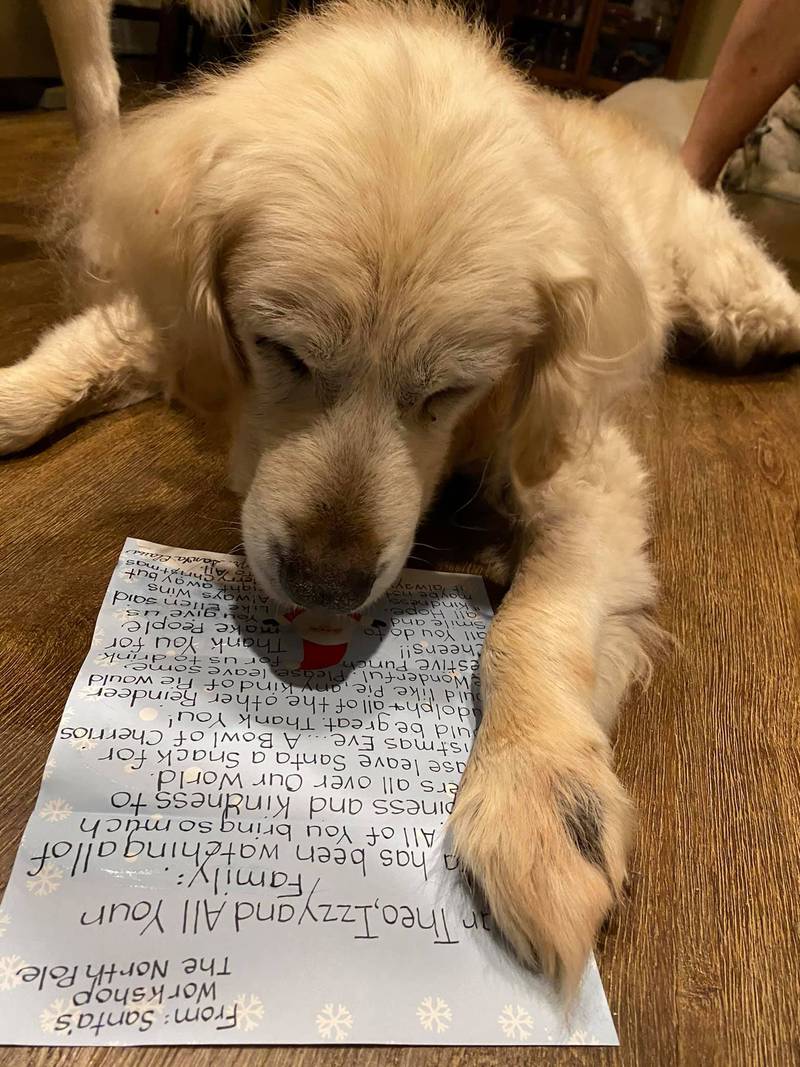 From: Santa's
Workshop
The North Pole,
Theo, Izzy and All Your
Family:
has been watching all of
All of You bring so much
piness and Kindness to
ers all over Our World.
ase leave Santa a Snack for
istmas Eve... A Bowl of Cherrios
uld be great. Thank You!
dolph + all of the other Reindeer
uld like Pie, any Kind of Pie would
Wonderful. Please leave some
estive Punch for us to drink
Cheers!! Thank You for
all You do to make People
Smile and give
all Hope. Like Ellen said
Kindness Always Wins
maybe not right away but
alway
Merry Christmas
To All
Santa Claus